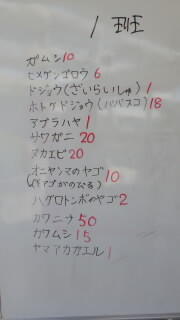 1班
ガムシ 10
ヒメゲンゴロウ 6
ドジョウ(ざいらいしゅ) 1
ホトケドジョウ( 18
アブラハヤ 1
サワガニ 20
ヌカエビ 20
オニヤンマのヤゴ 10
ハグロトンボのヤゴ 2
カワニナ 50
カワムシ 15
ヤマアカガエル 1